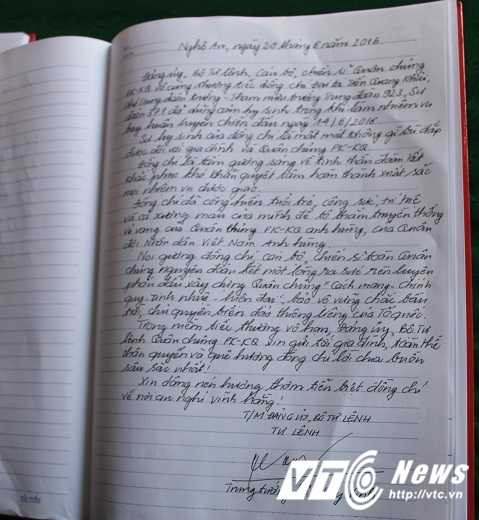 Nghệ An, ngày 20 tháng 6 năm 2016
Đảng ủy, Bộ Tư lệnh, cán bộ, chiến sĩ Quân chủng
PK-KQ vô cùng thương tiếc đồng chí Đại tá Trần Quang Khải,
Phi công quân trưởng - Tham mưu trưởng Trung đoàn 923, Sư
đoàn 371 đã dũng cảm hy sinh trong khi làm nhiệm vụ
bay huấn luyện chiến đấu ngày 14/6/2016.
Sự hy sinh của đồng chí là mất mát không gì bù đắp
được đối với gia đình và Quân chủng PK-KQ.
Đồng chí là tấm gương sáng về tinh thần đoàn kết
khắc phục khó khăn quyết tâm hoàn thành xuất sắc
mọi nhiệm vụ được giao.
Đồng chí đã cống hiến tuổi trẻ, công sức, trí tuệ
và cả xương máu của mình để tô thắm truyền thống
vẻ vang của Quân chủng PK-KQ anh hùng, của Quân
đội Nhân dân Việt Nam Anh hùng.
Noi gương đồng chí, cán bộ, chiến sĩ toàn Quân
chủng nguyện đoàn kết một lòng ra sức rèn luyện
phấn đấu xây dựng Quân chủng "Cách mạng - Chính
quy, tinh nhuệ - hiện đại", bảo vệ vững chắc bầu
trời, chủ quyền biển đảo thiêng liêng của Tổ quốc.
Trong niềm tiếc thương vô hạn, Đảng ủy, Bộ Tư
lệnh Quân chủng PK-KQ xin gửi tới gia đình, toàn thể
thân quyến và quê hương đồng chí lời chia buồn
sâu sắc nhất!
Xin dâng nén hương thơm tiễn biệt đồng chí
về nơi an nghỉ vĩnh hằng!
T/M ĐẢNG ỦY, BỘ TƯ LỆNH
TƯ LỆNH
Trung tướng
VTC News
http://vtc.vn